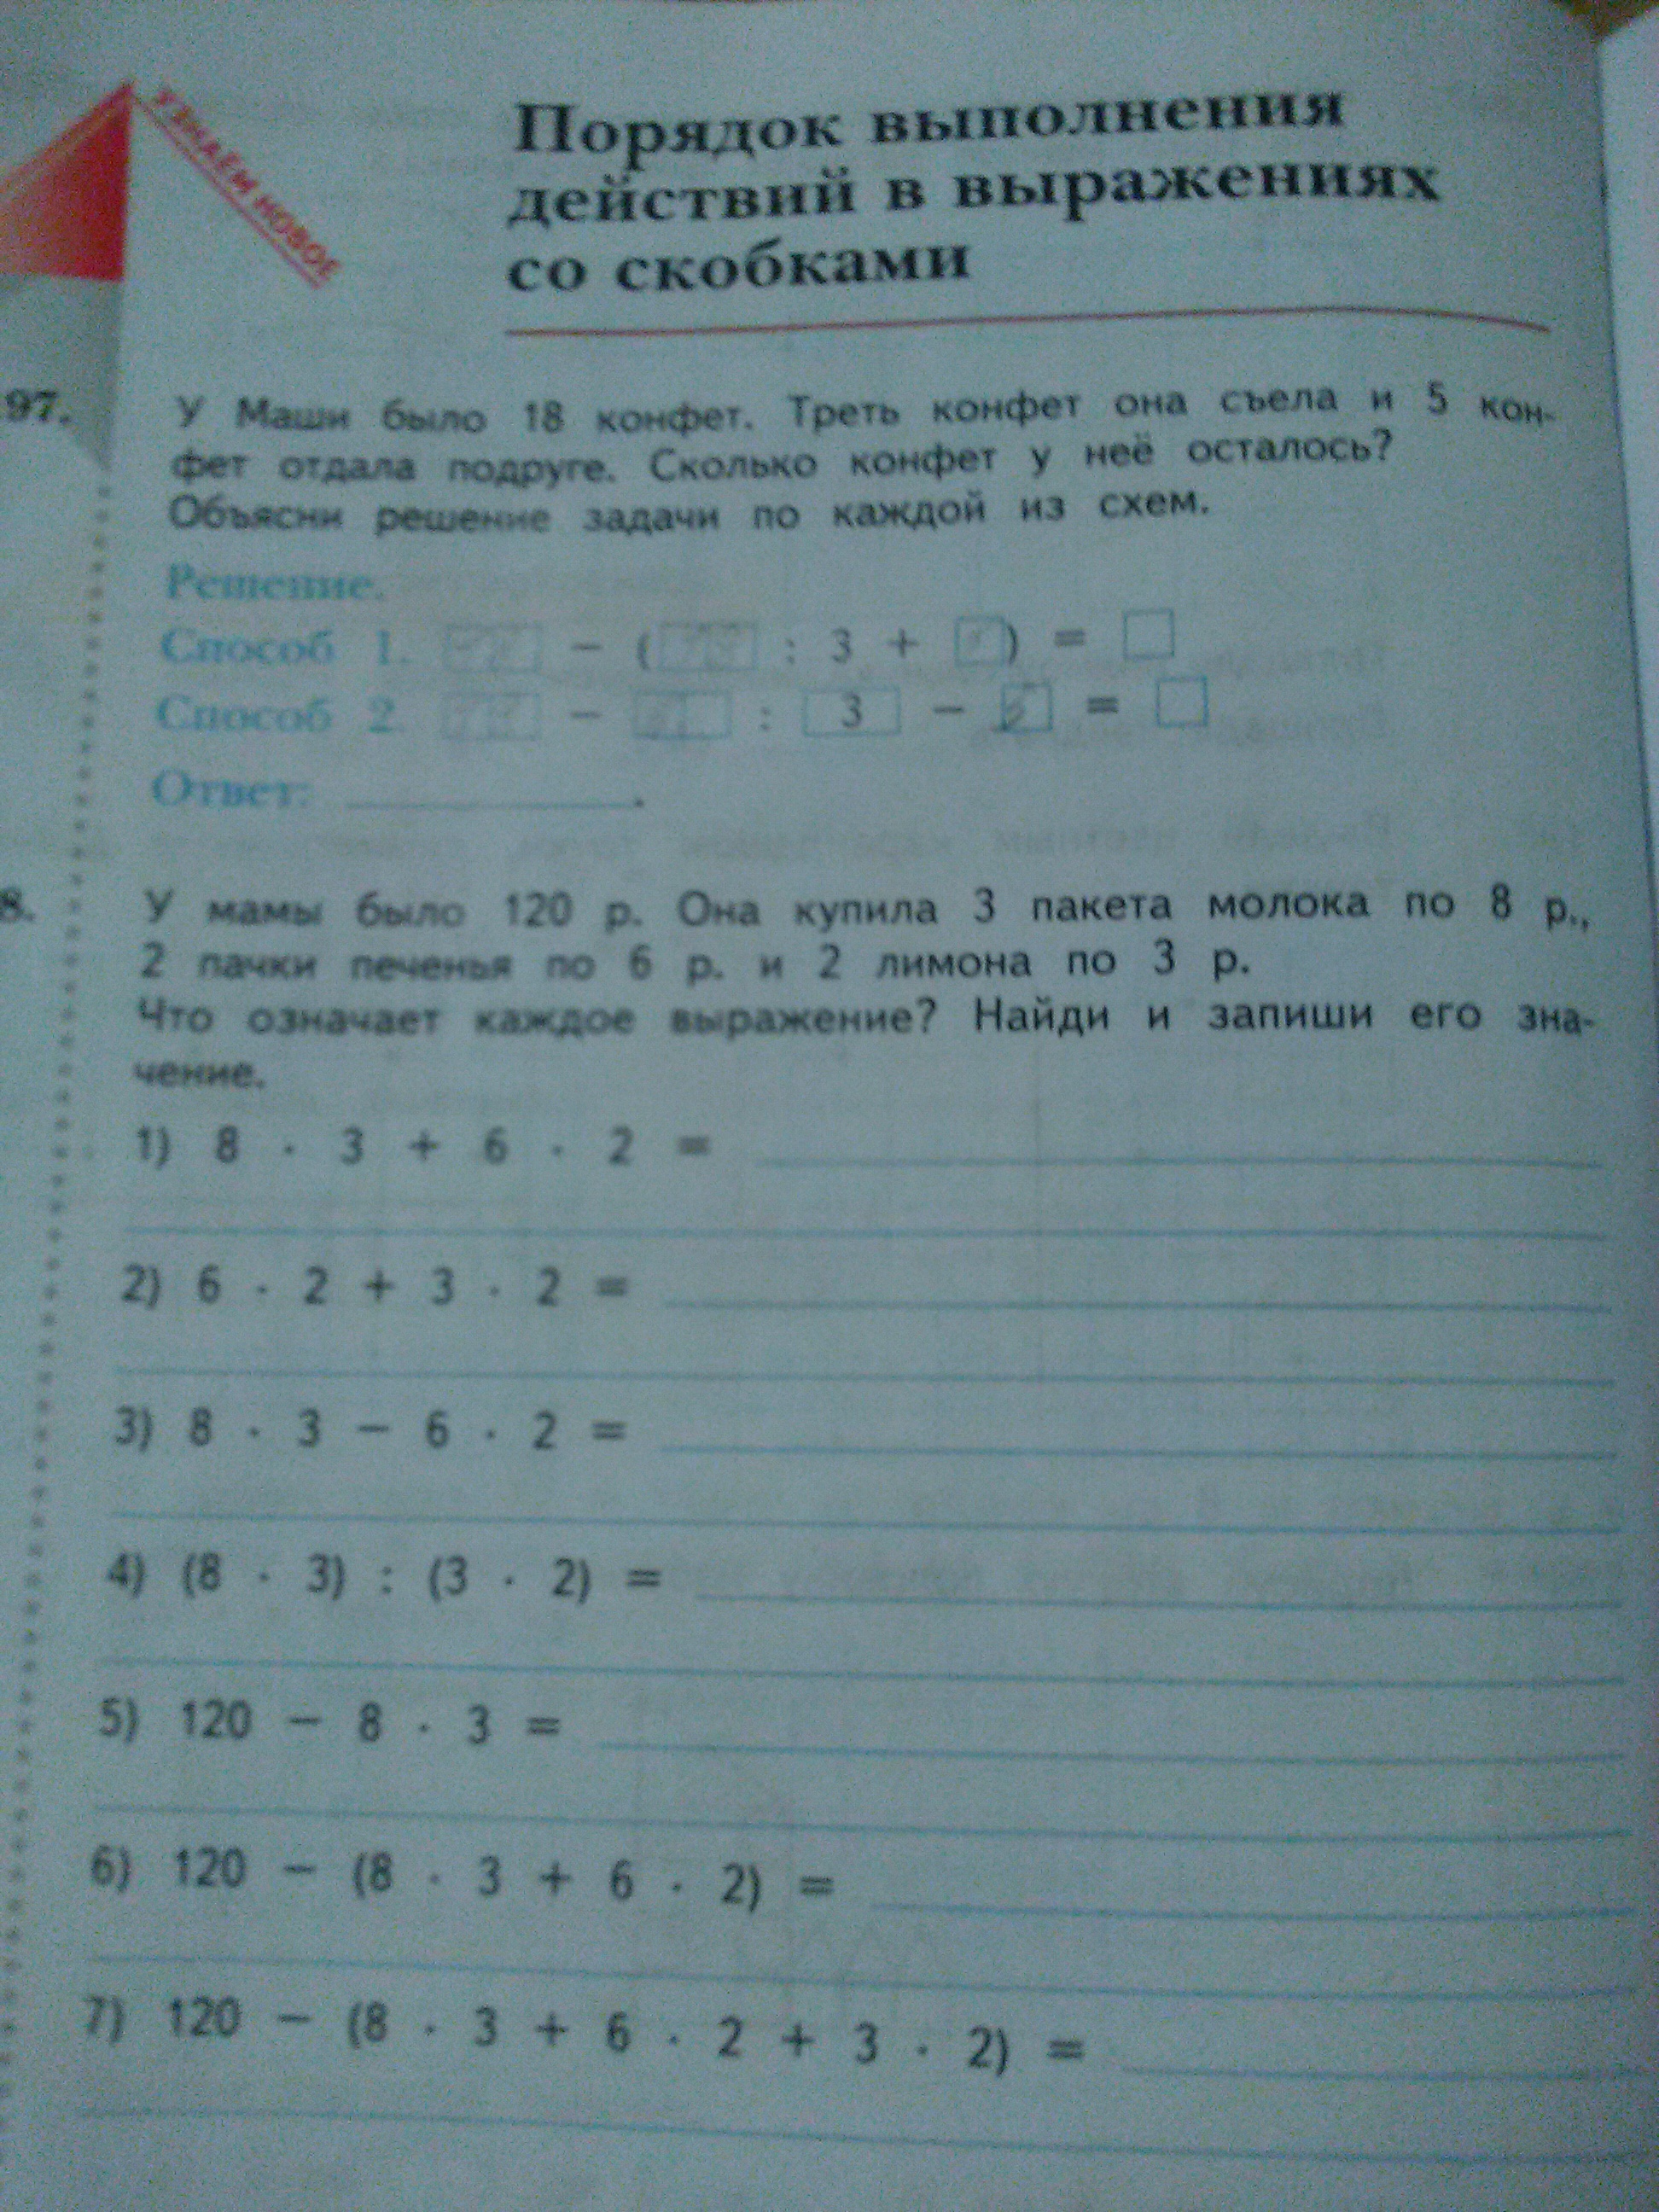 УЗНАЁМ НОВОЕ
Порядок выполнения
действий в выражениях
со скобками
97. У Маши было 18 конфет. Треть конфет она съела и 5 кон-
фет отдала подруге. Сколько конфет у неё осталось?
Объясни решение задачи по каждой из схем.
Решение.
Способ 1. – ( : 3 + ) =
Способ 2. – : 3 – =
Ответ: .
8. У мамы было 120 р. Она купила 3 пакета молока по 8 р.,
2 пачки печенья по 6 р. и 2 лимона по 3 р.
Что означает каждое выражение? Найди и запиши его зна-
чение.
1) 8 · 3 + 6 · 2 =
2) 6 · 2 + 3 · 2 =
3) 8 · 3 – 6 · 2 =
4) (8 · 3) : (3 · 2) =
5) 120 – 8 · 3 =
6) 120 – (8 · 3 + 6 · 2) =
7) 120 – (8 · 3 + 6 · 2 + 3 · 2) =